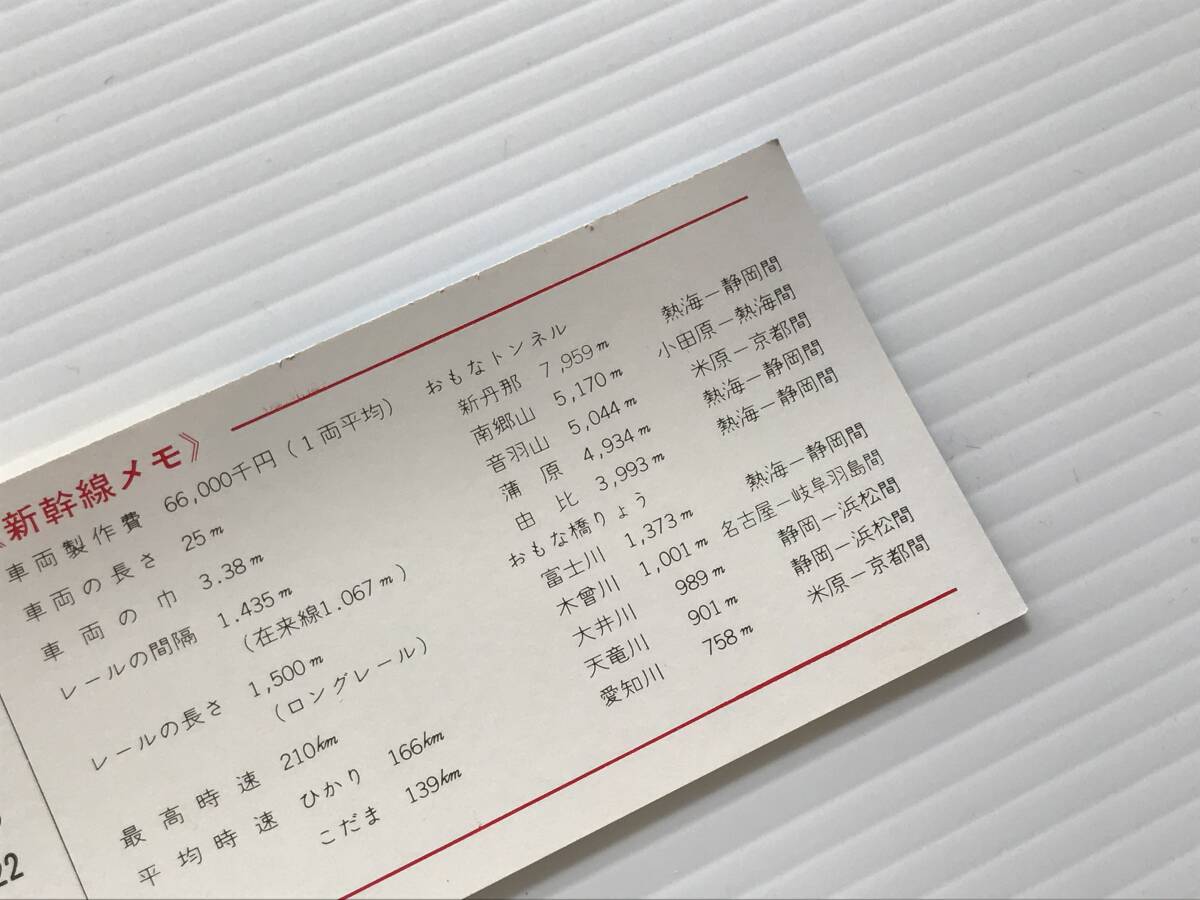 《新幹線メモ》
車両製作費 66,000千円(1両平均)
車両の長さ 25m
車両の巾 3.38m
レールの間隔 1.435m
(在来線1.067m)
レールの長さ 1,500m
(ロングレール)
最高時速 210km
平均時速 ひかり 166km
こだま 139km
おもなトンネル
新丹那 7,959m 熱海－静岡間
南郷山 5,170m 小田原－熱海間
音羽山 5,044m 米原－京都間
蒲原 4,934m 熱海－静岡間
由比 3,993m 熱海－静岡間
おもな橋りょう
富士川 1,373m 熱海－静岡間
木曾川 1,001m 名古屋－岐阜羽島間
大井川 989m 静岡－浜松間
天竜川 901m 静岡－浜松間
愛知川 758m 米原－京都間
22